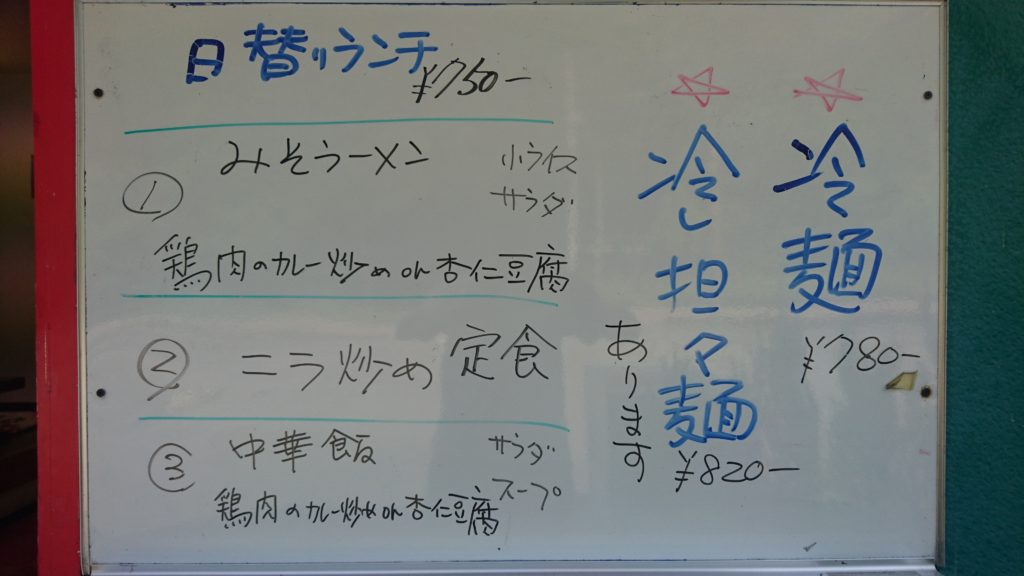 日替りランチ
¥750-
① みそラーメン 小ライス
サラダ
鶏肉のカレー炒め or 杏仁豆腐
② ニラ炒め定食
③ 中華飯 サラダ
スープ
鶏肉のカレー炒め or 杏仁豆腐
☆冷麺
¥780-
☆冷し担々麺
¥820-
あります